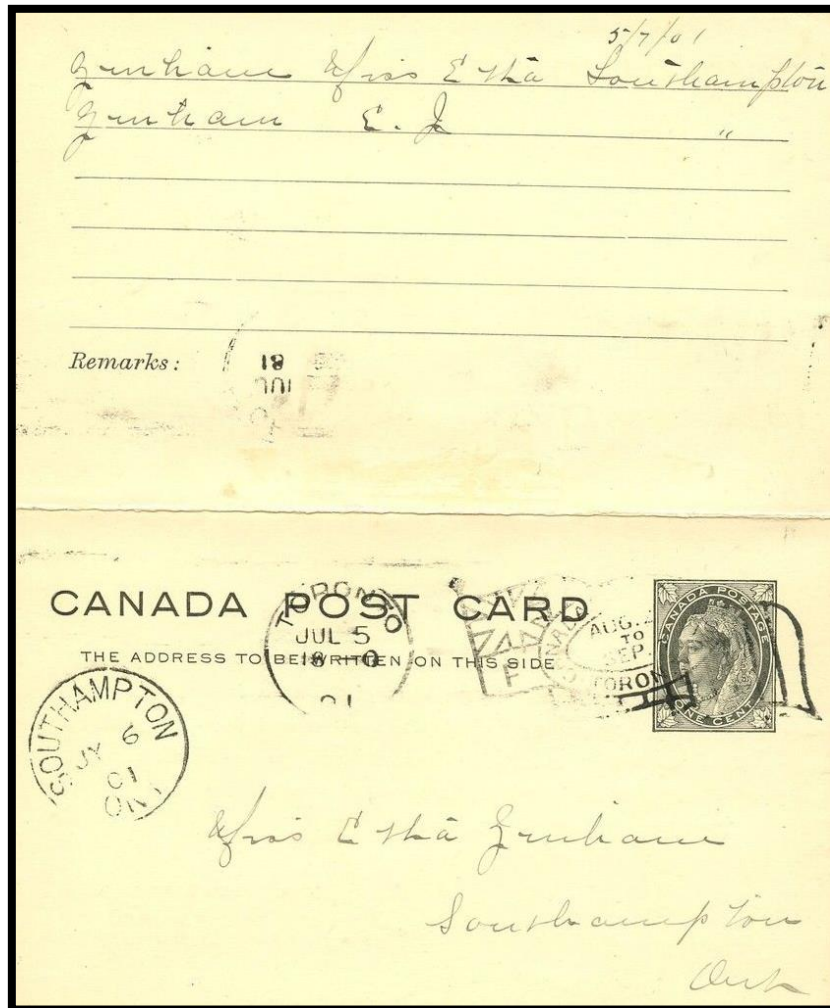 5/7/01
Miss Southampton
E. J. "
Remarks:
18
JUL
CANADA POST CARD
THE ADDRESS TO BE WRITTEN ON THIS SIDE
TORONTO
JUL 5
18 0
01
AUG.
TO
SEP.
TORON
CANADA POSTAGE
ONE CENT
SOUTHAMPTON
JY 6
01
ONT
Miss
Southampton
Ont